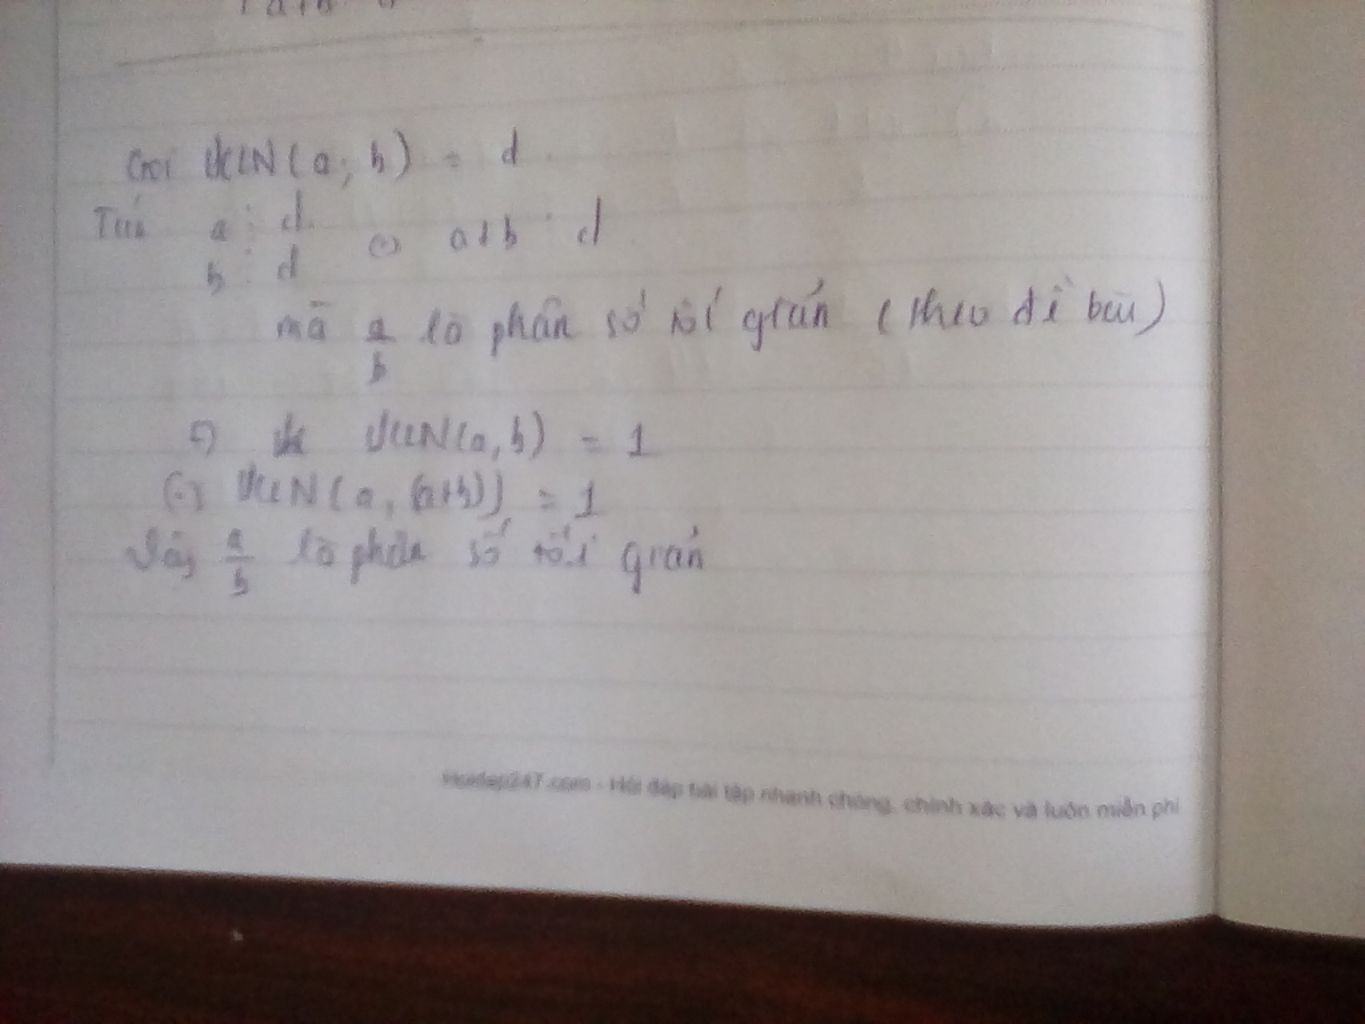 Gọi ƯCLN(a; b) = d
Ta có a ⋮ d
b ⋮ d ⇔ a+b ⋮ d
mà a/b là phân số tối giản (theo đề bài)
⇒ ƯCLN(a, b) = 1
⇔ ƯCLN(a, (a+b)) = 1
Vậy a/b là phân số tối giản
Hoidap247.com - Hỏi đáp bài tập nhanh chóng, chính xác và luôn miễn phí